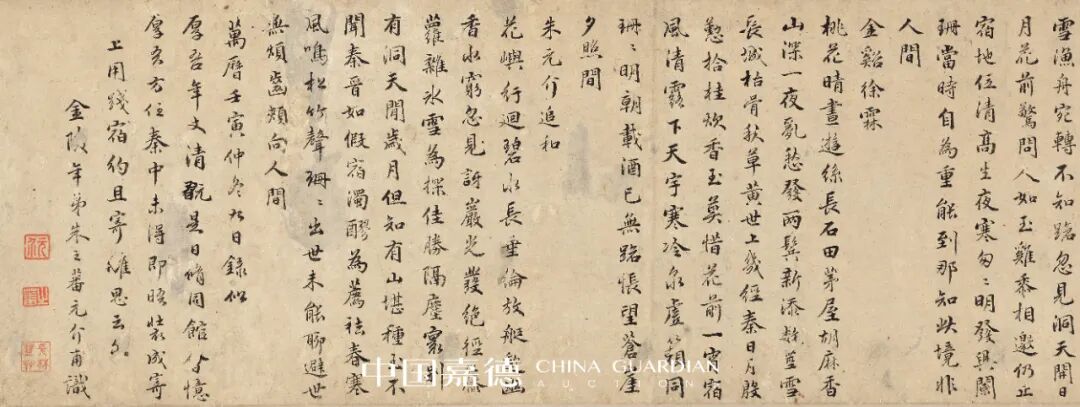 雪漁舟宛轉不知路忽見洞天開日
月花前驚問人如玉雞黍相邀仍止
宿地位清高生夜寒匆〻明發興闌
珊當時自為重能到那知此境非
人間
金谿徐霖
桃花晴晝遊絲長石田茅屋胡麻香
山深一夜亂愁發兩鬢新添數莖雪
長城枯骨秋草黃世上幾經秦日月殷
懃拾桂炊香玉莫惜花前一宵宿
風清露下天宇寒冷泉虛籟同
珊〻明朝載酒已無路悵望蒼崖
夕照間
朱元介追和
花嶼行迴碧水長垂綸放艇幽
香水窮忽見訝巖光發絕徑
蘿雜冰雪為探佳勝隔塵寰別
有洞天閒歲月但知有山堪種玉不
聞秦晉如假宿濁醪為薦祛春寒
風鳴松竹聲珊〻出世未能聊避世
無煩齒頰向人間
萬曆壬寅仲冬日錄似
厚吾年丈清翫是日脩同館憶
厚吾方位秦中未得即晤裝成寄
上用踐宿約且寄離思云爾
金陵年弟朱之蕃元介甫識
中国嘉德 CHINA GUARDIAN
AUCTIONS